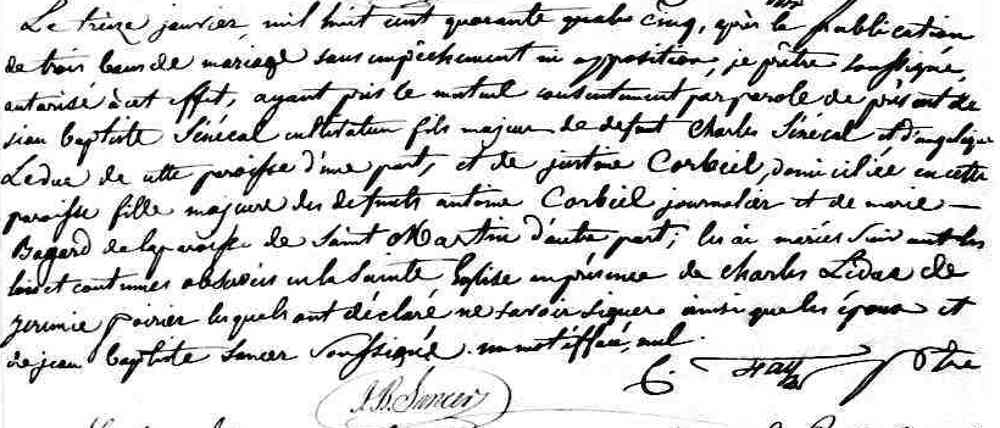 Le treize janvier, mil huit cent quarante quatre cinq, après la publication
de trois bans de mariage sans empêchement ni opposition, je prêtre soussigné,
autorisé à cet effet, ayant pris le mutuel consentement par parole de présent de
jean baptiste Sénécal cultivateur fils majeur de defunt Charles Sénécal et d'angelique
Leduc de cette paroisse d'une part, et de justine Corbeil, domiciliée en cette
paroisse fille majeure des defunts antoine Corbeil journalier et de marie —
de la paroisse de Saint Martin d'autre part; les ai mariés suivant les
lois et coutumes observées en la Sainte Eglise en présence de Charles Leduc de
jeremie poirier lesquels ont déclaré ne savoir signer ainsi que les époux et
de jean baptiste Sancer soussigné. un mot éffacé, nul.
C. Ptre
J.B. Sancer